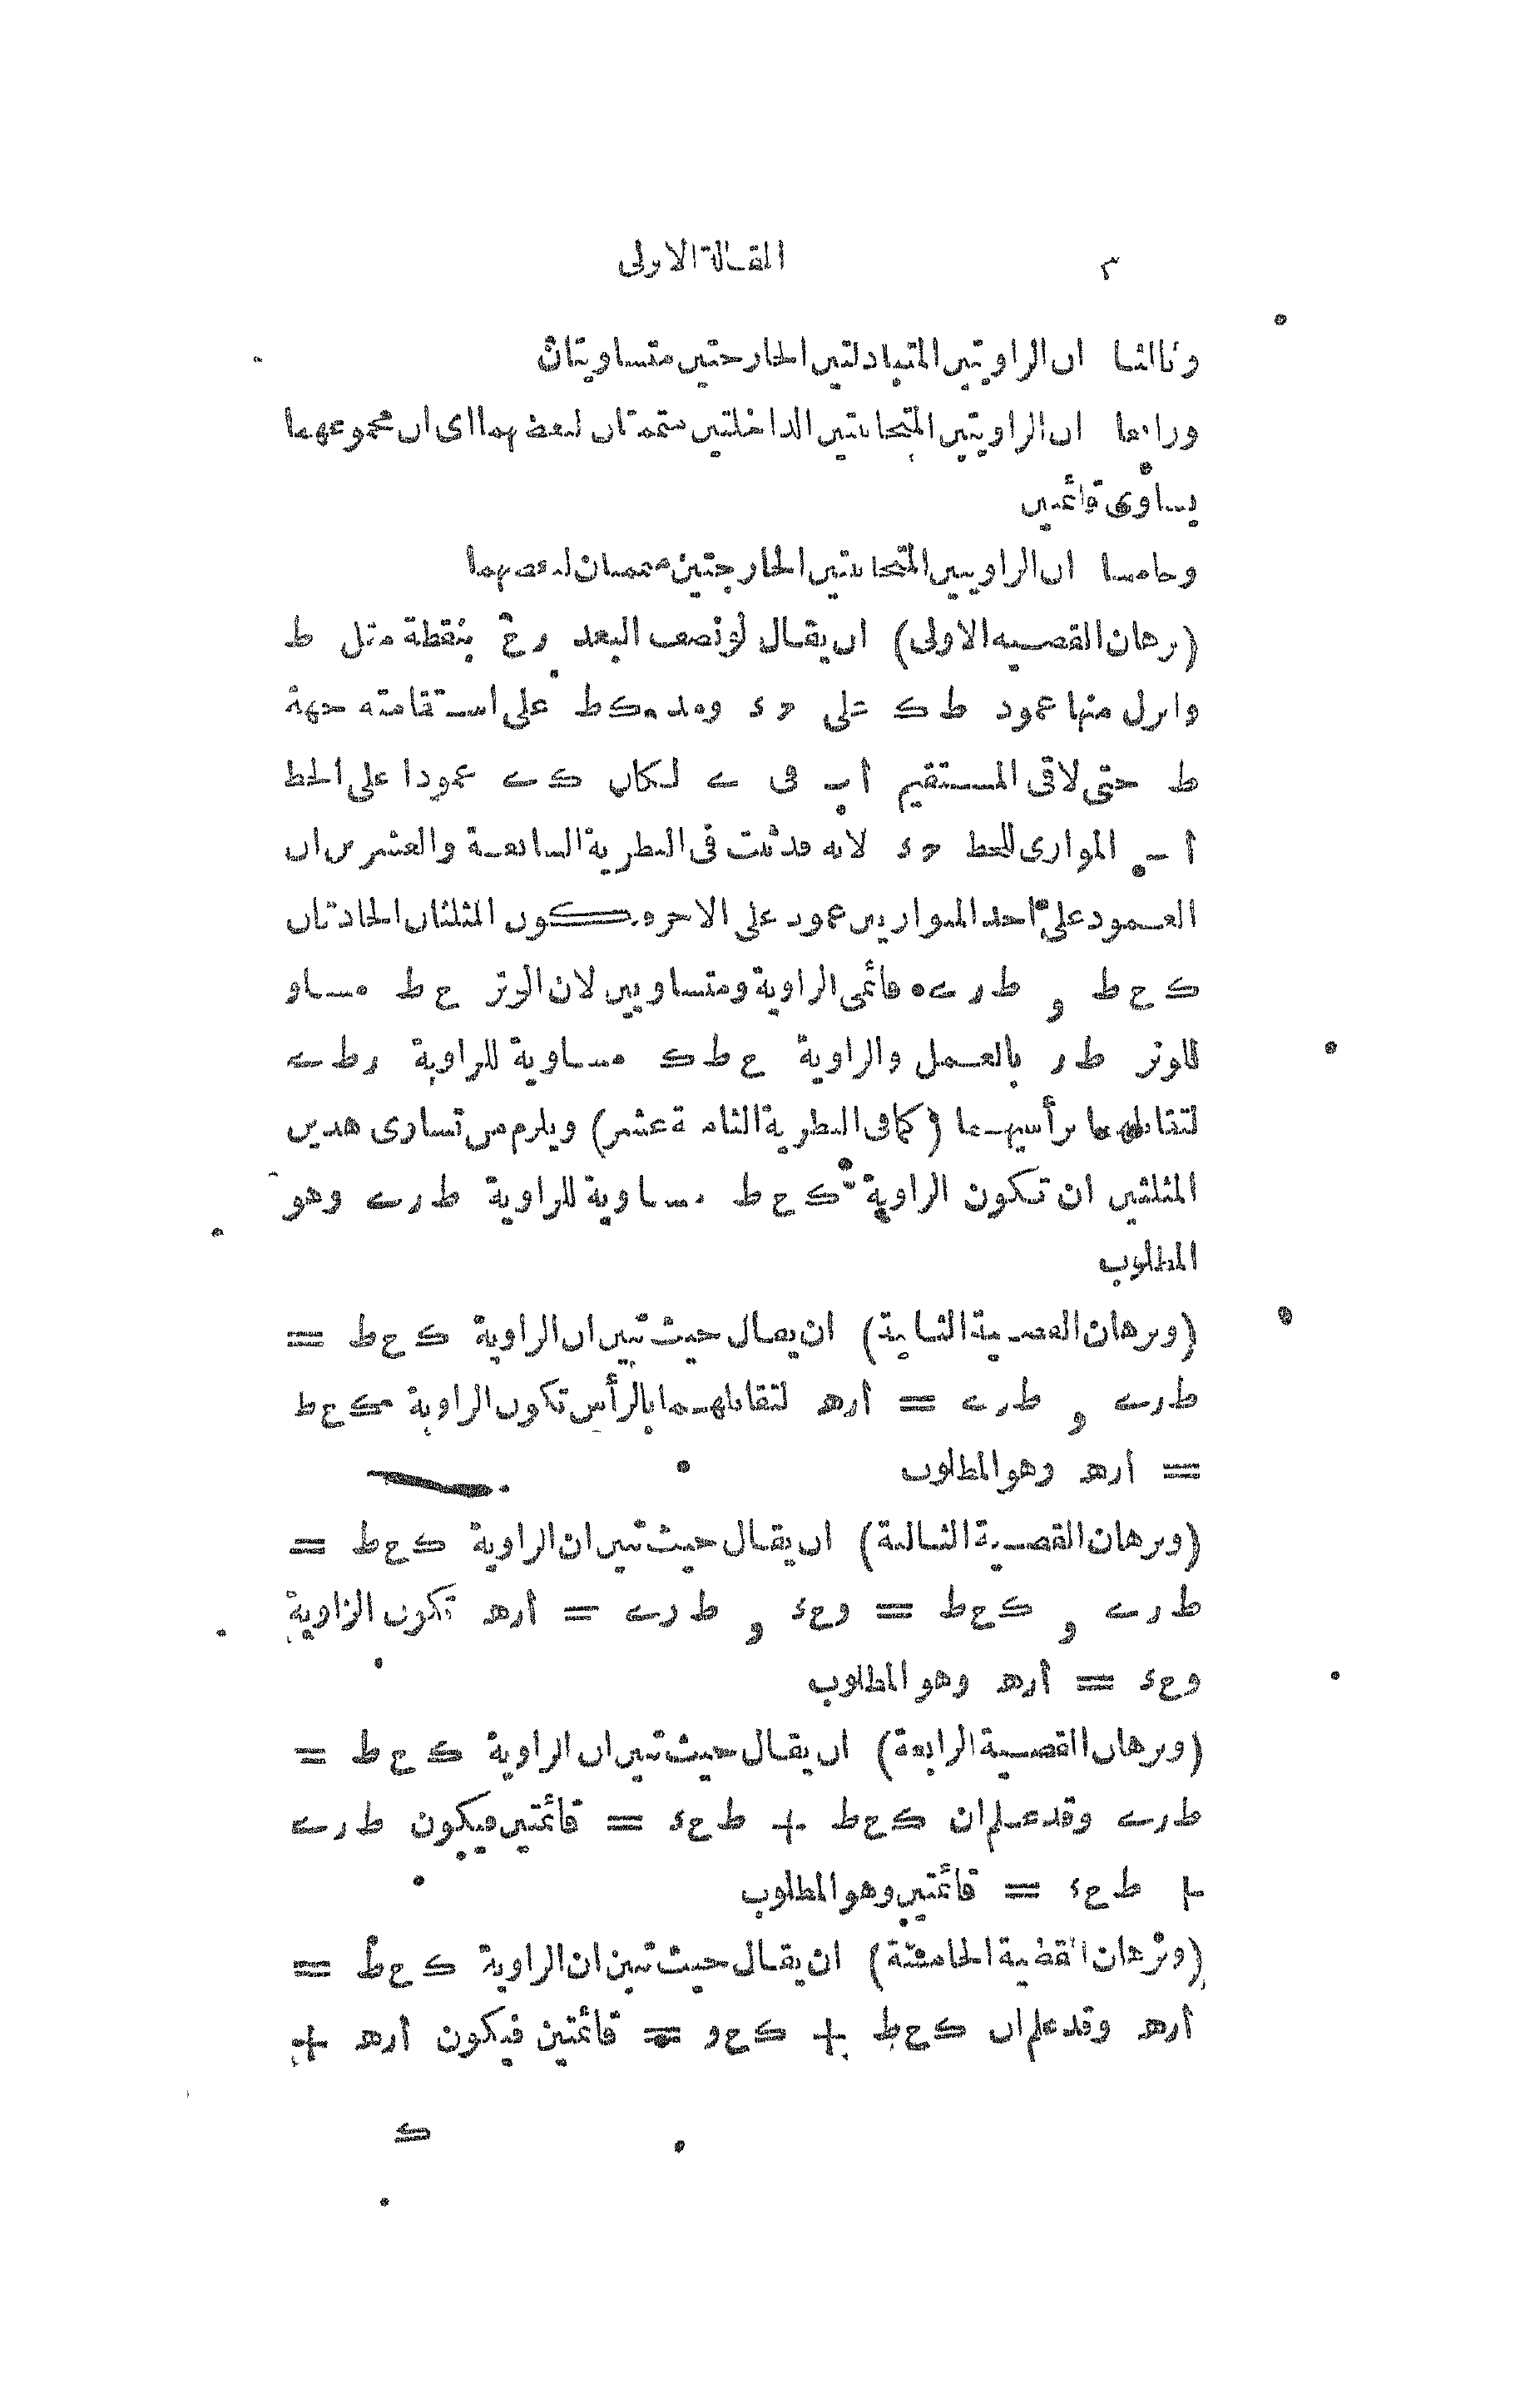 ٣ المقالة الاولى
وثالثا ان الزاويتين المتبادلتين الخارجتين متساويتان
ورابعا ان الزاويتين المتجانبتين الداخلتين متممتان لبعضهما اى ان مجموعهما
يساوى قائمتين
وخامسا ان الزاويتين المتجانبتين الخارجتين متممتان لبعضهما
(برهان القضيه الاولى) ان يقال لو نصف البعد زح بنقطة مثل ط
وانزل منها عمود طك على حد ومد كط على استقامته جهة
ط حتى لاقى المستقيم اب فى ى لكان كى عمودا على الخط
اب الموازى للخط حد لانه قد ثبت فى النظرية السابعة والعشرين ان
العمود على احد المتوازيين عمود على الاخر ويكون المثلثان الحادثان
كحط و طزى قائمى الزاوية ومتساويين لان الوتر حط مساو
للوتر طز بالعمل والزاوية حطك مساوية للزاوية زطى
لتقابلهما برأسيهما (كما فى النظرية الثامنة عشر) ويلزم من تساوى هذين
المثلثين ان تكون الزاوية كحط مساوية للزاوية طزى وهو
المطلوب
(وبرهان القضية الثانية) ان يقال حيث تبين ان الزاوية كحط =
طزى و طزى = ازه لتقابلهما بالرأس تكون الزاوية كحط
= ازه وهو المطلوب
(وبرهان القضية الثالثة) ان يقال حيث تبين ان الزاوية كحط =
طزى و كحط = وحد و طزى = ازه تكون الزاوية
وحد = ازه وهو المطلوب
(وبرهان القضية الرابعة) ان يقال حيث تبين ان الزاوية كحط =
طزى وقد علم ان كحط + طحد = قائمتين فيكون طزى
+ طحد = قائمتين وهو المطلوب
(وبرهان القضية الخامسة) ان يقال حيث تبين ان الزاوية كحط =
ازه وقد علم ان كحط + كحو = قائمتين فيكون ازه +
ك